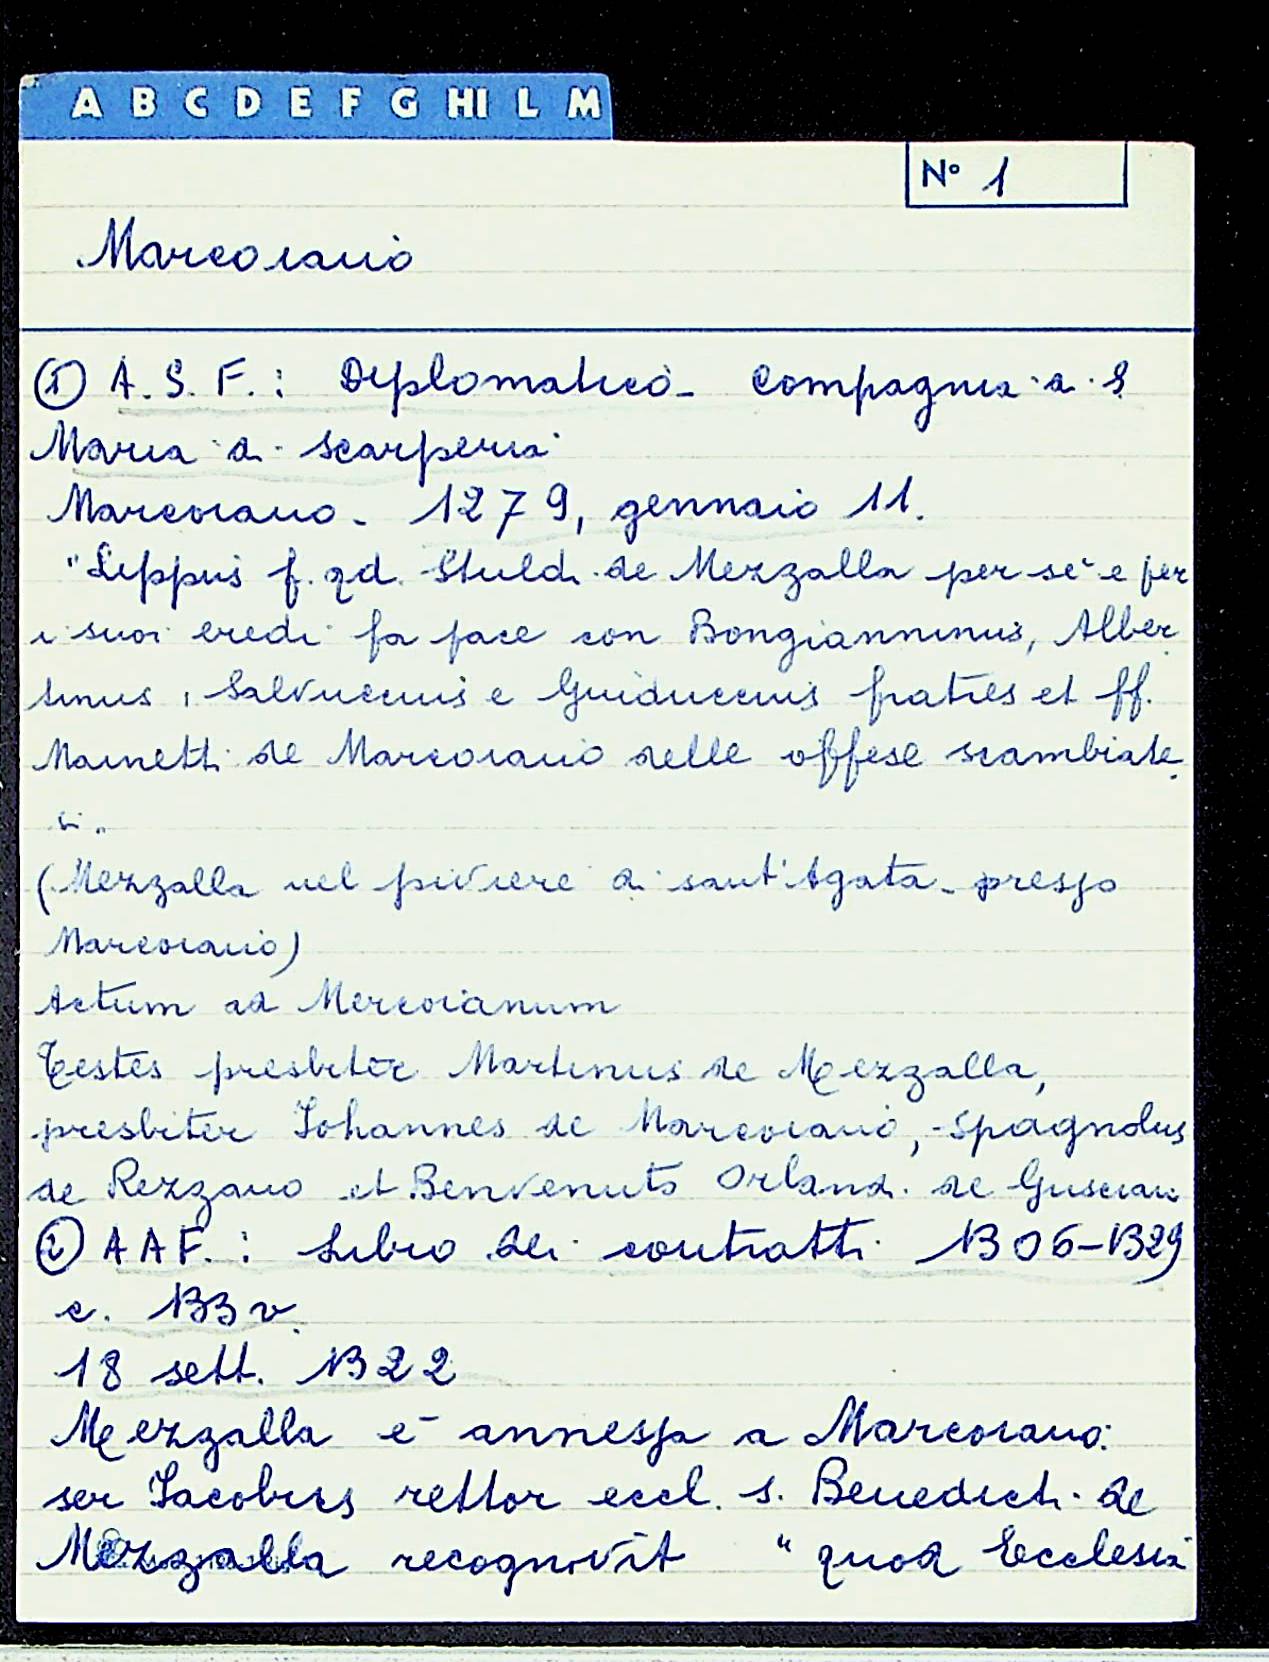 A B C D E F G HI L M
N° 1
Marcoiano
① A.S.F.: Diplomatico - Compagnia di S.
Maria di Scarperia
Marcoiano - 1279, gennaio 11.
"Lippus f. qd. Stuldi de Mezzalla per sé e per
i suoi eredi fa pace con Bongianninus, Alber
tinus, Salvuccius e Guiduccius fratres et ff.
Mainetti de Marcoiano delle offese scambiate
si.
(Mezzalla nel piviere di sant'Agata - presso
Marcoiano)
Actum ad Mercoianum
Testes presbiter Martinus de Mezzalla,
presbiter Iohannes de Marcoiano, Spagnolus
de Rezzano et Benvenuto Orlandi de
② A A F. : Libro dei contratti 1306-1329
c. 133 v.
18 sett. 1322
Mezzalla è annessa a Marcoiano:
ser Iacobus rettor eccl. s. Benedicti de
Mezzalla recognovit "quod Ecclesia